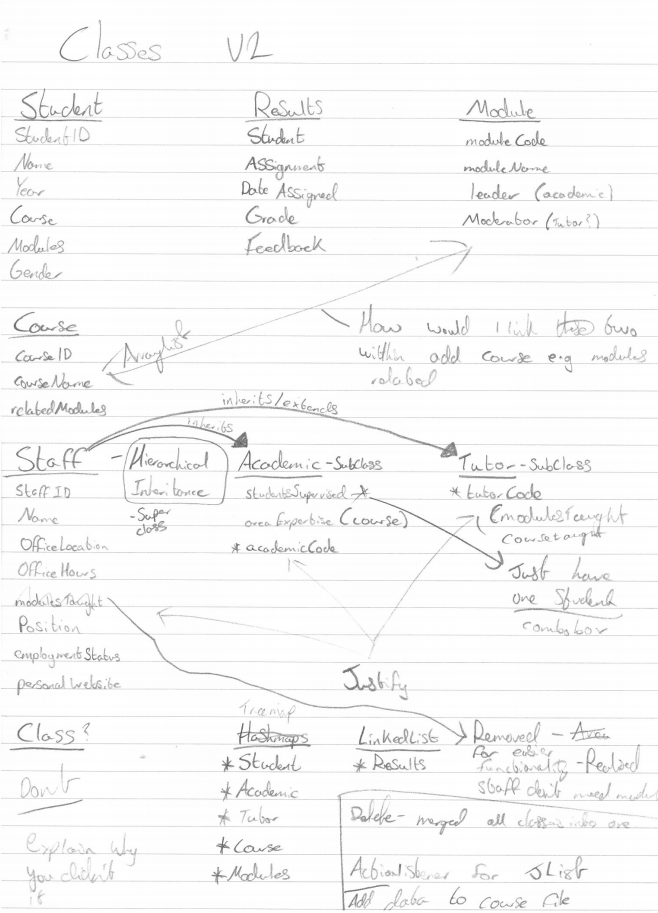 Classes V2
Student
StudentID
Name
Year
Course
Modules
Gender
Results
Student
Assignment
Date Assigned
Grade
Feedback
Module
moduleCode
moduleName
leader (academic)
Moderator (Tutor?)
Course
CourseID
CourseName
relatedModules
Arraylist
How would I link these two
within add course e.g modules
related
inherits/extends
inherits
Staff - Hierarchical
Inheritance
- Super
class
StaffID
Name
OfficeLocation
Office Hours
modulesTaught
Position
employmentStatus
personalWebsite
Academic - Subclass
studentsSupervised - *
area Expertise (course)
* academicCode
Tutor - Subclass
* tutorCode
modulesTaught
coursetaught
Just have
one Student
combobox
Justify
Class?
Don't
Explain why
you didn't
it
Treemap
Hashmaps
* Student
* Academic
* Tutor
* Course
* Modules
LinkedList
* Results
Removed - Area
for easier
functionality - Realized
staff don't need
Delete - merged all classes into one
Actionlistener for JList
Add data to course file